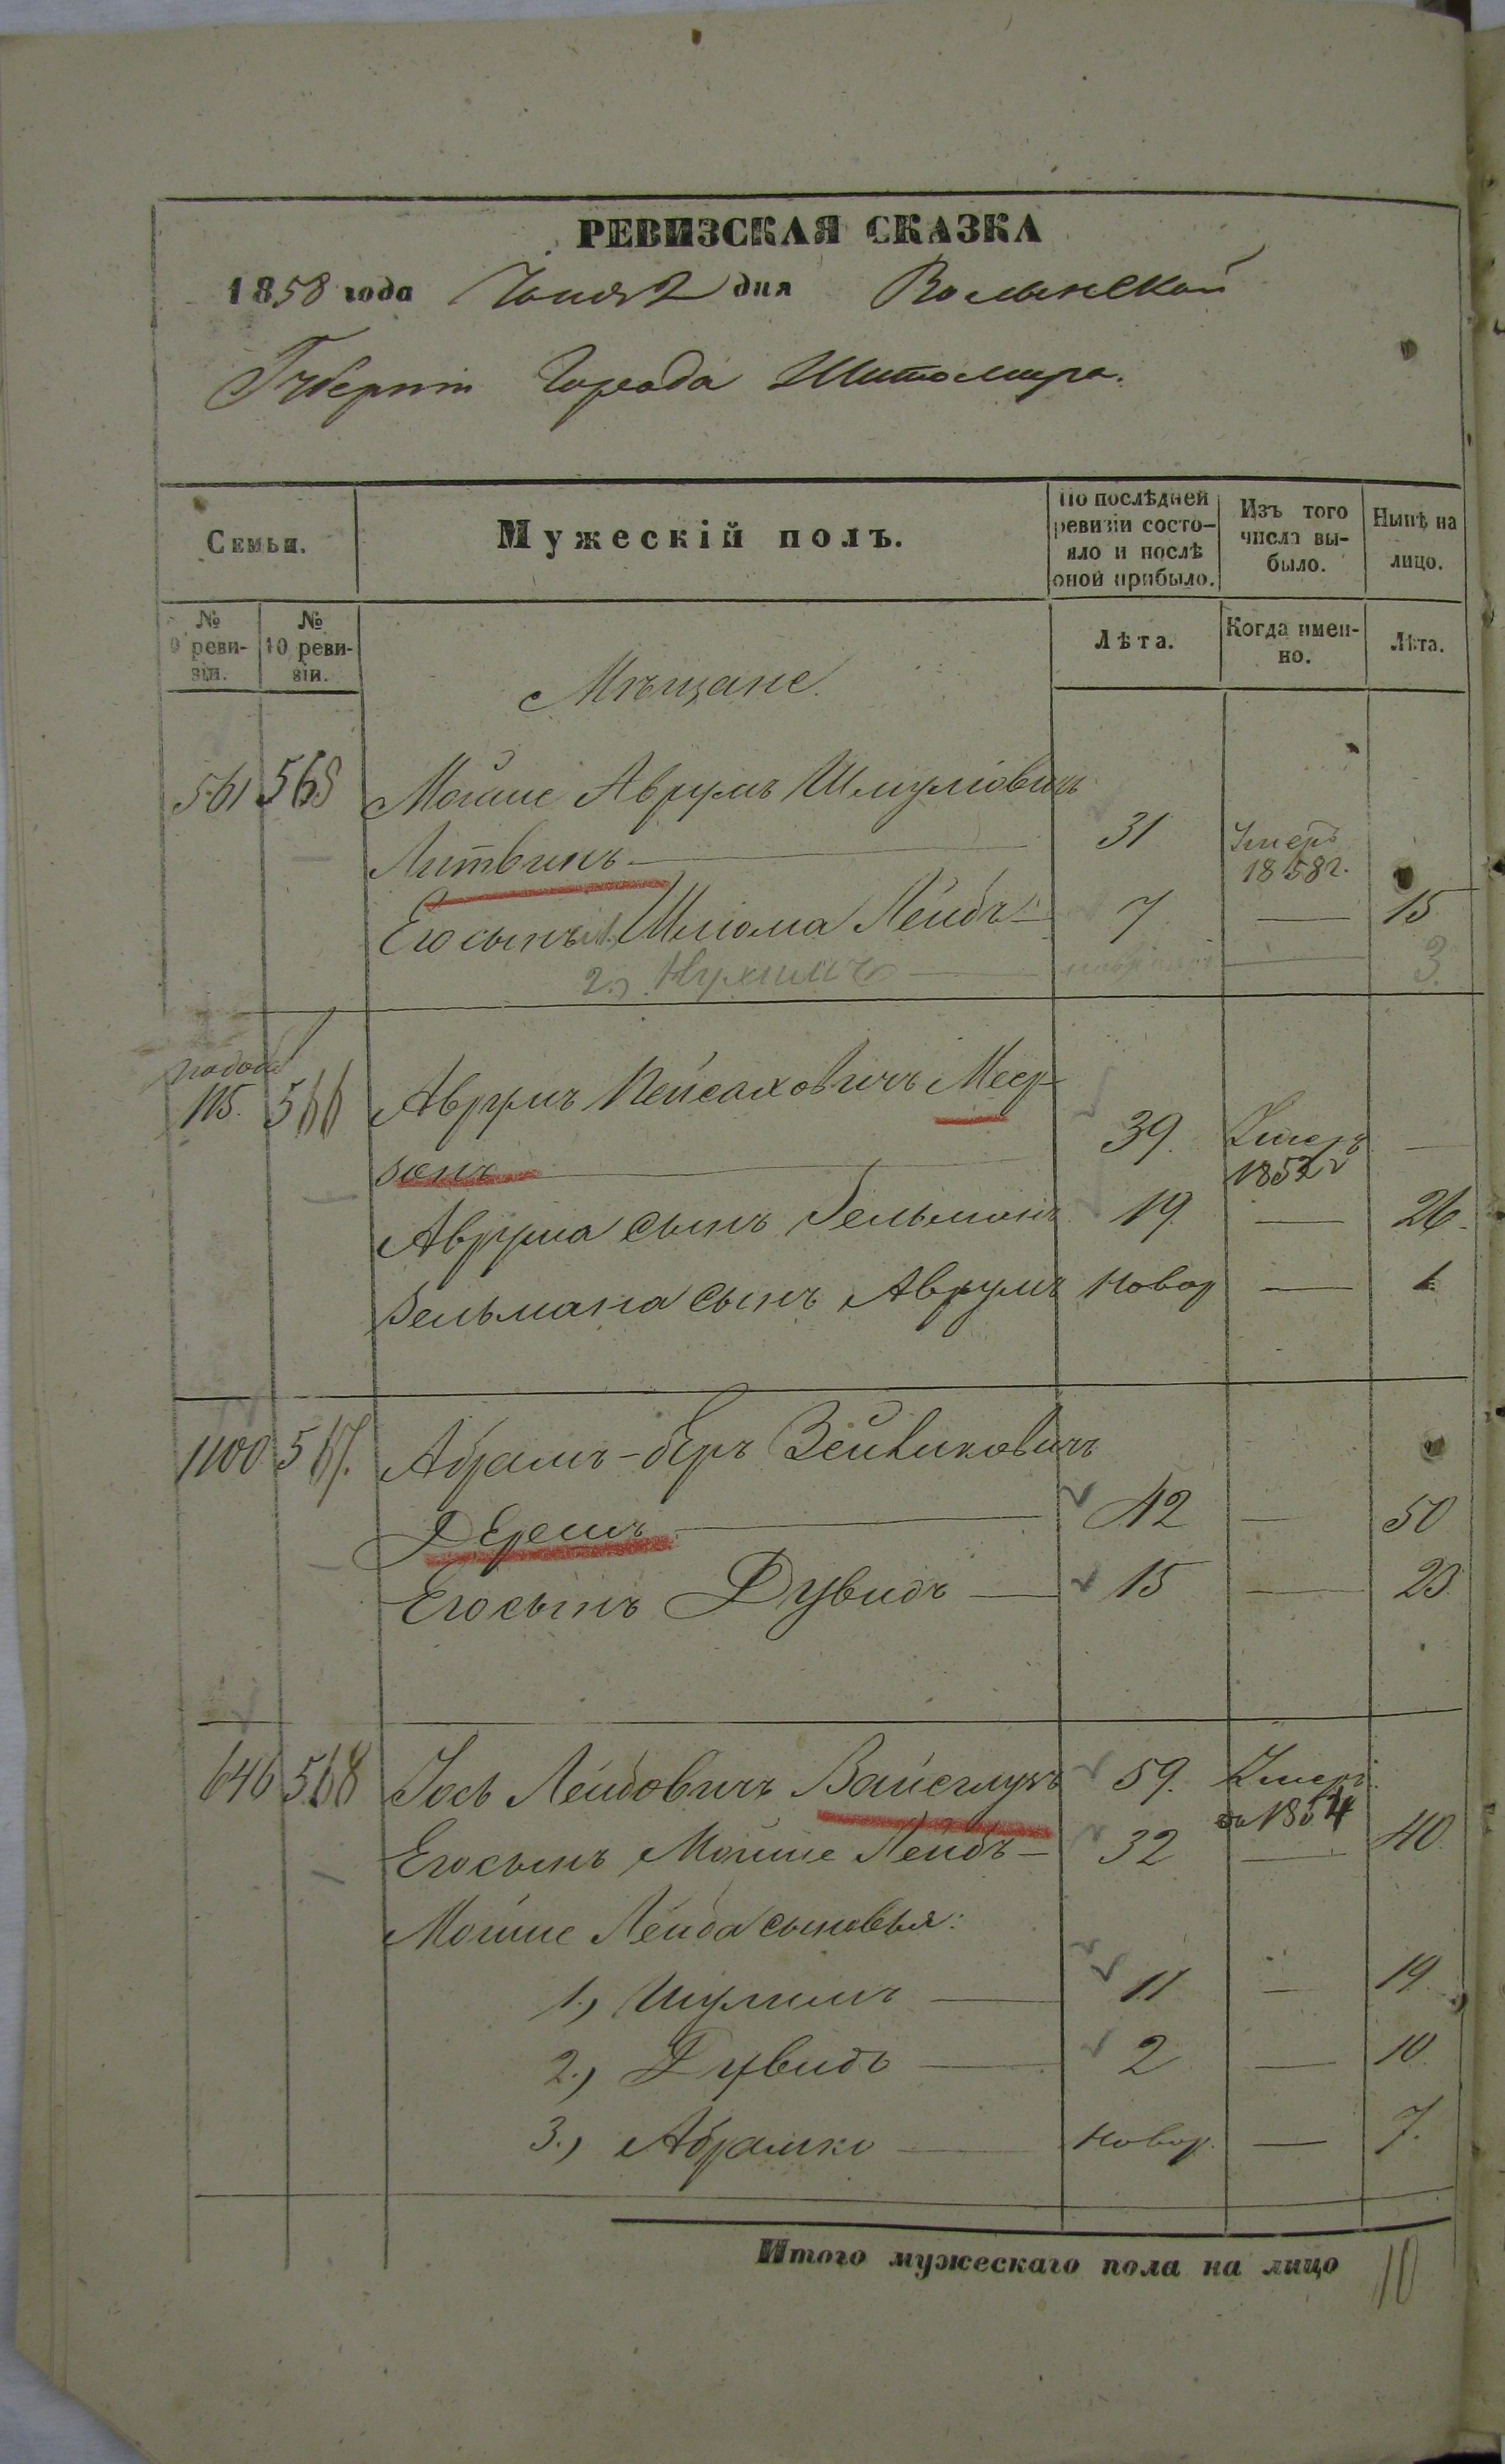 РЕВИЗСКАЯ СКАЗКА
1858 года Іюня 2 дня Волынской
Губерніи Города Житомира.
Семьи. Мужескій полъ. По послѣдней ревизіи состояло и послѣ оной прибыло. Изъ того числа выбыло. Нынѣ на лицо.
№ 9 ревизіи. № 10 ревизіи. Лѣта. Когда именно. Лѣта.
Мѣщане.
561 565 Мойше Аврумъ Шмуліовичъ
Литвинъ 31 Умеръ 1858г.
Его сынъ 1, Шліома Лейбъ 7 — 15
2.) Нухимъ — 3.
115. 566 Аврумъ Пейсаховичъ Меер-
зонъ 39. Умеръ 1852 —
Аврума сынъ Зельманъ 19. — 26.
Зельмана сынъ Аврумъ новор — 1
1100 567. Абрамъ-беръ Зейликовичъ
42 — 50
Его сынъ Дувидъ — 15 — 23.
646 568 Іось Лейбовичъ Вайсглузъ 59. Умеръ 1854
Его сынъ Мойше Лейбъ — 32 — 40.
Мойше Лейба сыновья:
1.) Шулимъ — 11 — 19.
2.) Дувидъ — 2 — 10.
3.) Абрамко — Новор. — 7.
Итого мужескаго пола на лицо 10